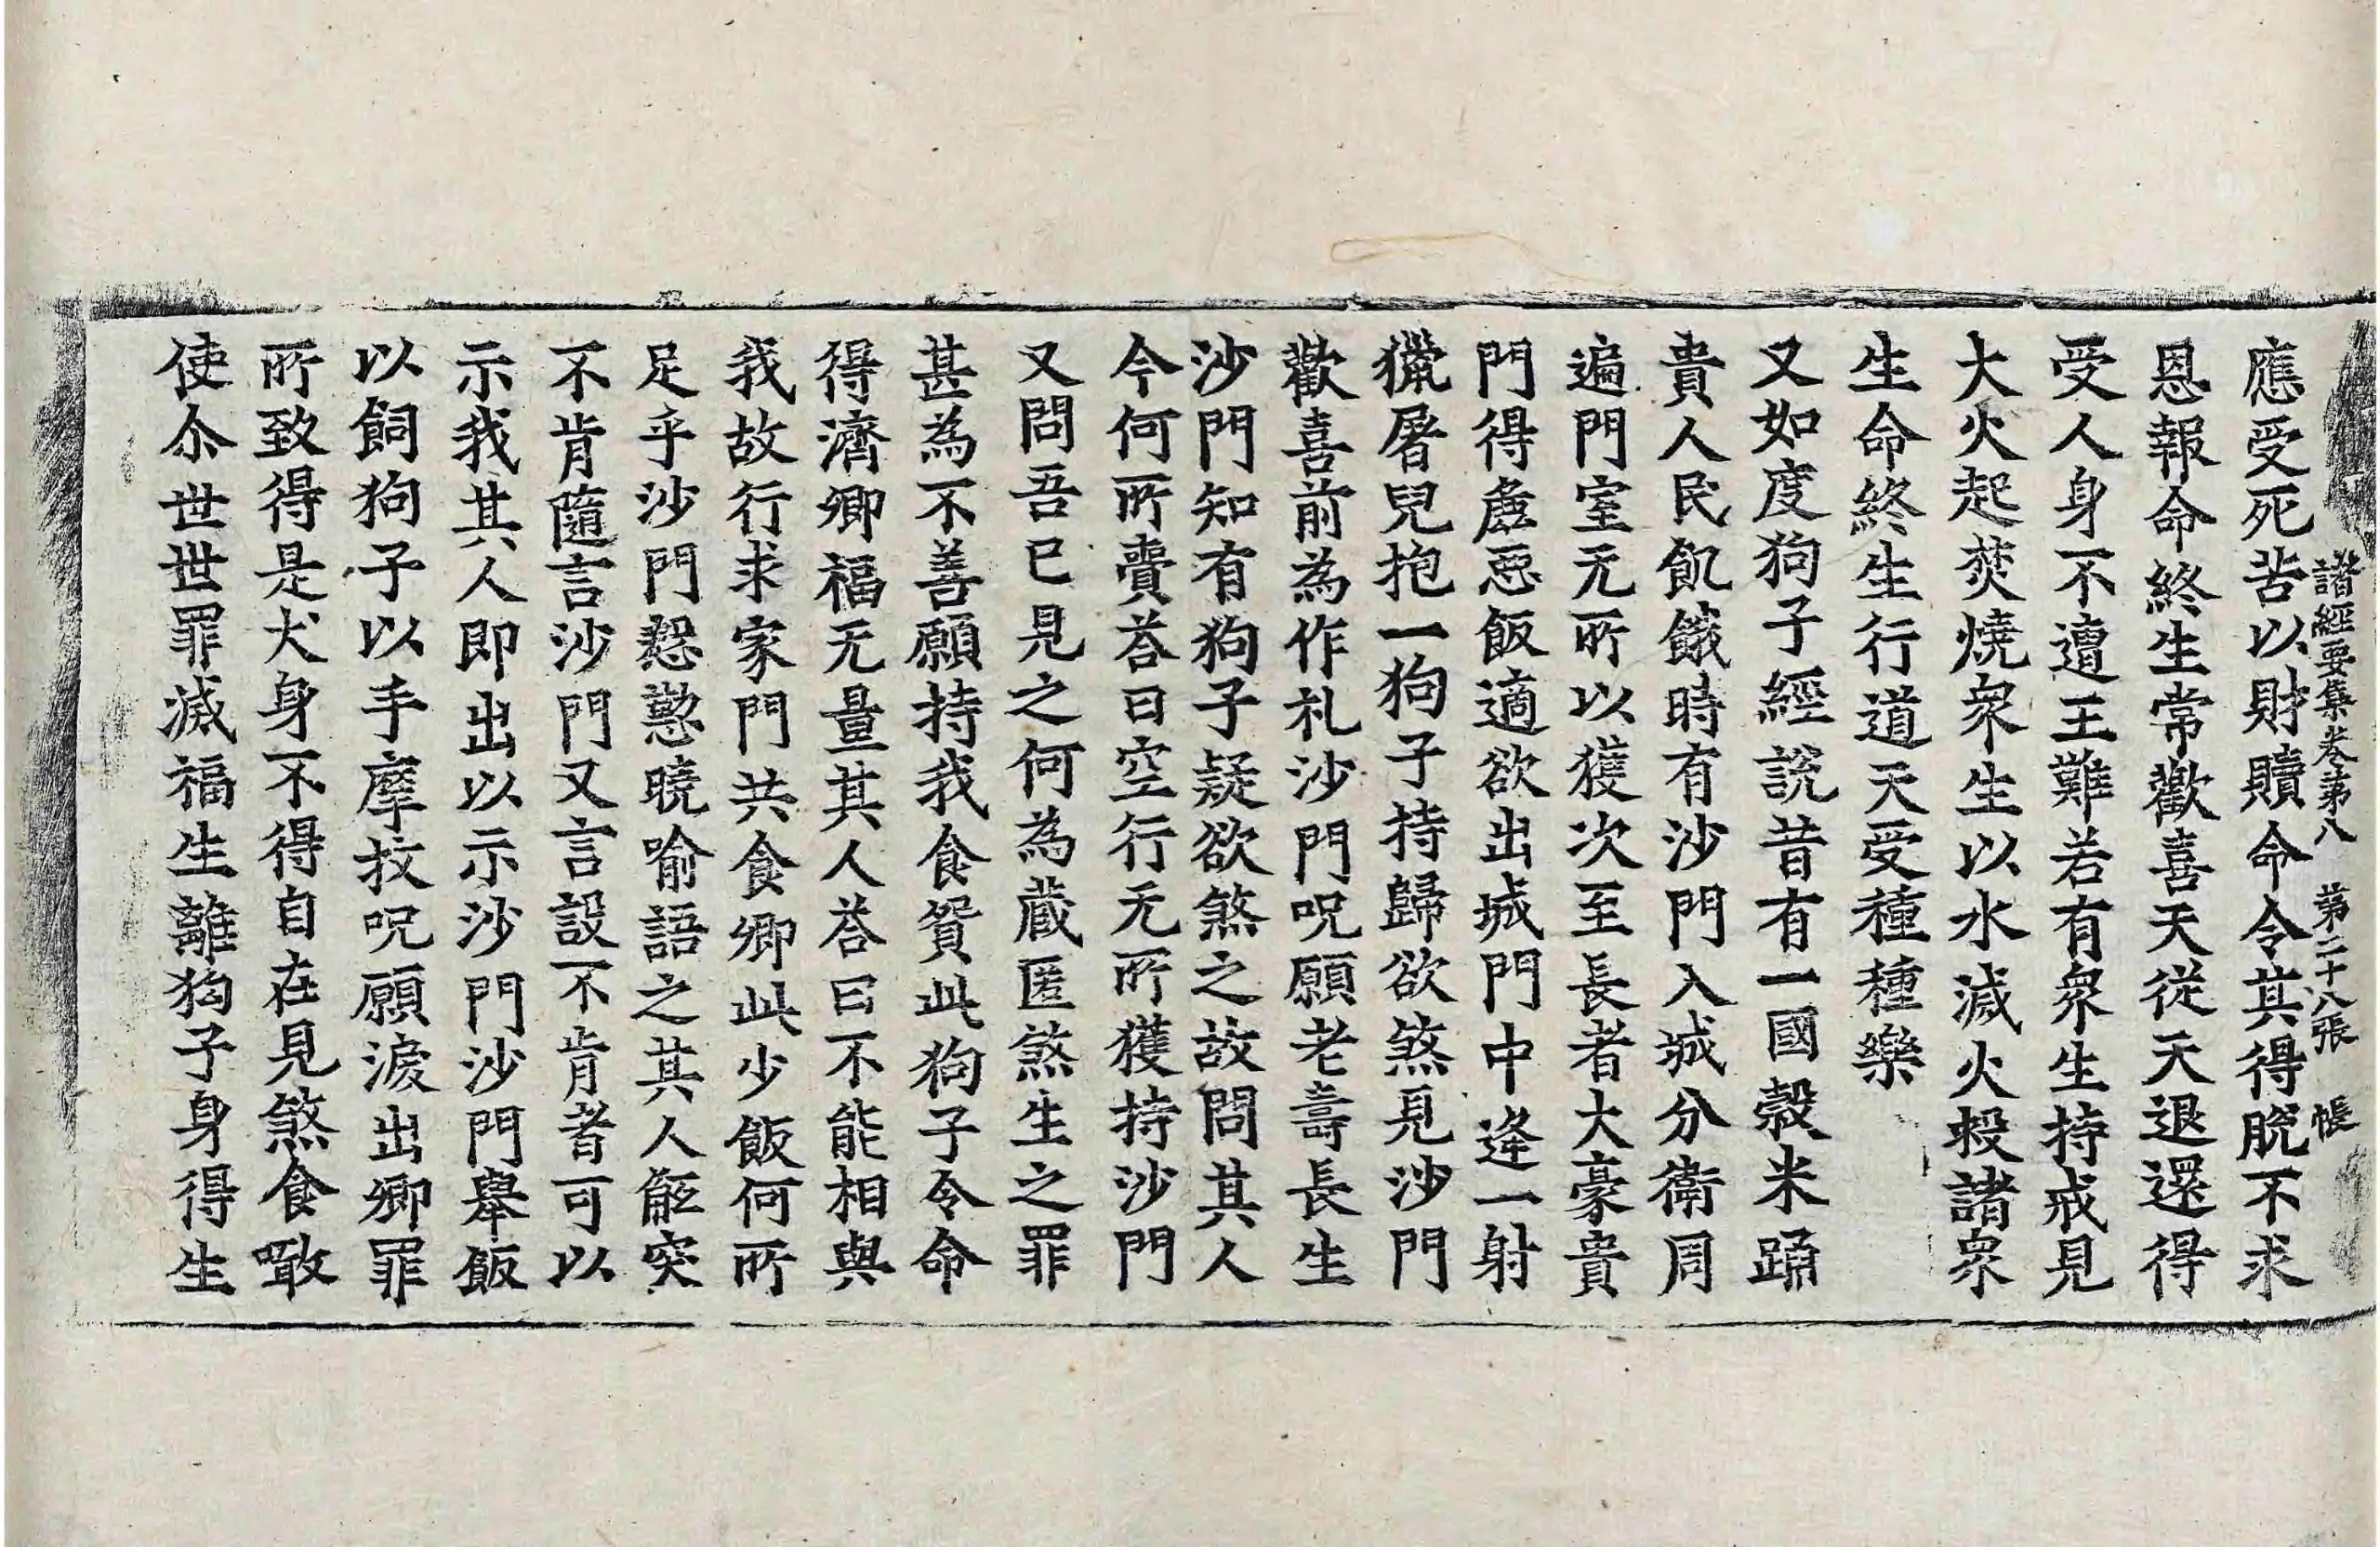 諸經要集卷第八 第二十八張 帳
應受死苦以財贖命令其得脫不求
恩報命終生常歡喜天從天退還得
受人身不遭王難若有衆生持戒見
大火起焚燒衆生以水滅火救諸衆
生命終生行道天受種種樂
又如度狗子經說昔有一國穀米踊
貴人民飢餓時有沙門入城分衛周
遍門室无所以獲次至長者大豪貴
門得麁惡飯適欲出城門中逢一射
獵屠兒抱一狗子持歸欲煞見沙門
歡喜前為作礼沙門呪願老壽長生
沙門知有狗子疑欲煞之故問其人
今何所賷荅曰空行无所獲持沙門
又問吾已見之何為藏匿煞生之罪
甚為不善願持我食貿此狗子令命
得濟卿福无量其人荅曰不能相與
我故行求家門共食卿此少飯何所
足乎沙門慇懃曉喻語之其人觝突
不肯隨言沙門又言設不肯者可以
示我其人即出以示沙門沙門舉飯
以飼狗子以手摩抆呪願淚出卿罪
所致得是犬身不得自在見煞食噉
使尒世世罪滅福生離狗子身得生